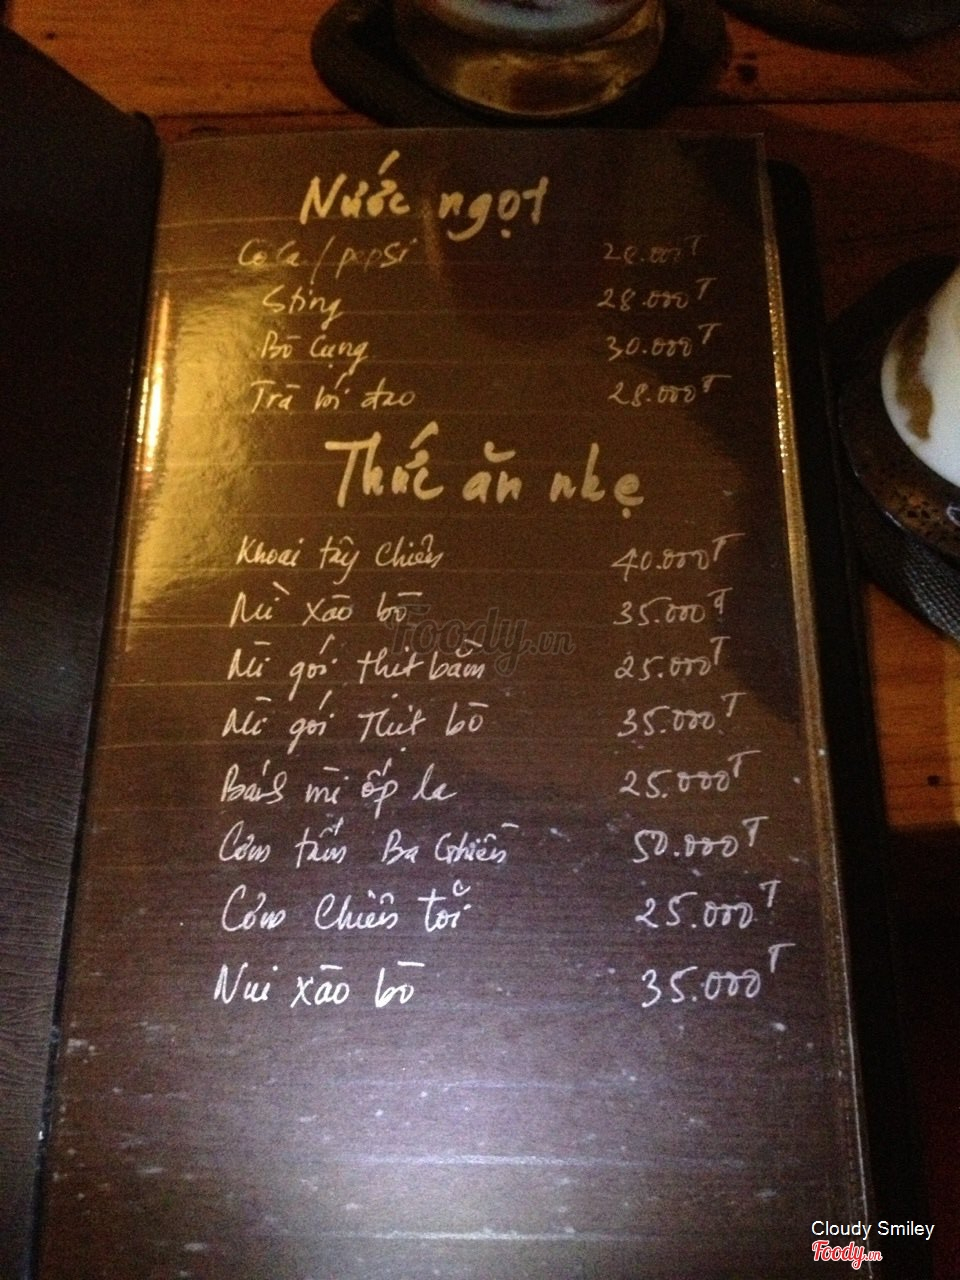 Nước ngọt
Coca / pepsi 28.000đ
Sting 28.000đ
Bò Cụng 30.000đ
Trà bí đao 28.000đ
Thức ăn nhẹ
Khoai tây chiên 40.000đ
Mì xào bò 35.000đ
Mì gói thịt bằm 25.000đ
Mì gói thịt bò 35.000đ
Bánh mì ốp la 25.000đ
Cơm tấm Ba Ghiền 50.000đ
Cơm chiên tỏi 25.000đ
Nui xào bò 35.000đ
Foody.vn
Cloudy Smiley
Foody.vn